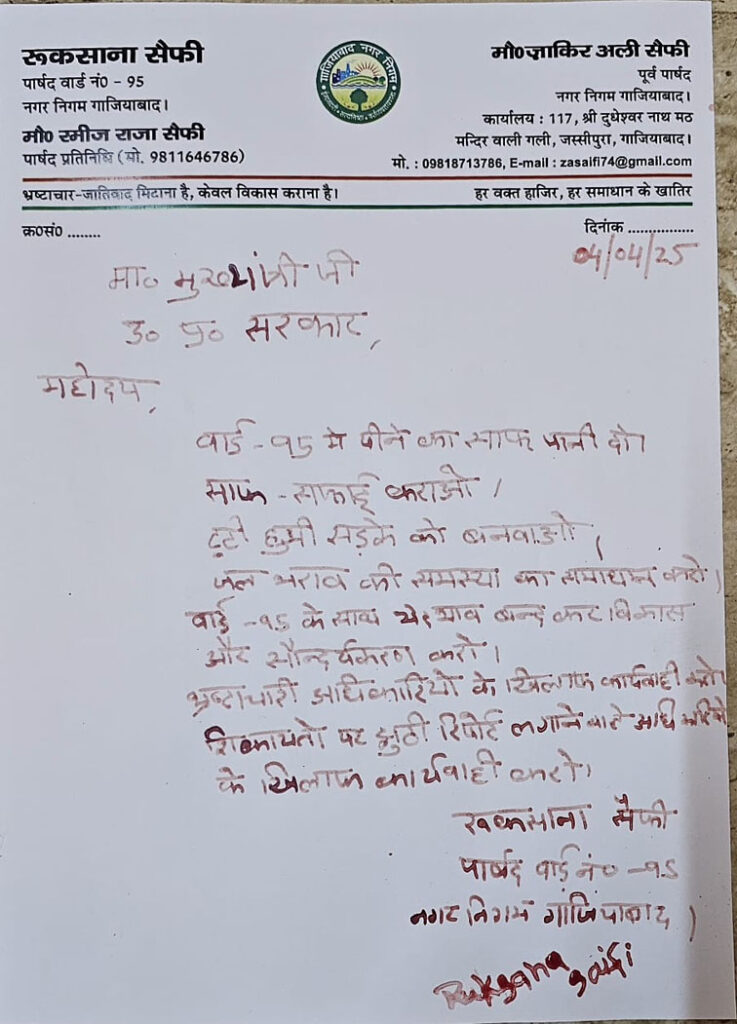 रूकसाना सैफी
पार्षद वार्ड नं0 - 95
नगर निगम गाजियाबाद।
मौ0 रमीज राजा सैफी
पार्षद प्रतिनिधि (मो. 9811646786)
गाजियाबाद नगर निगम
मौ0ज़ाकिर अली सैफी
पूर्व पार्षद
नगर निगम गाजियाबाद।
कार्यालय : 117, श्री दुधेश्वर नाथ मठ
मन्दिर वाली गली, जस्सीपुरा, गाजियाबाद।
मो. : 09818713786, E-mail : zasaifi74@gmail.com
भ्रष्टाचार-जातिवाद मिटाना है, केवल विकास कराना है।
हर वक्त हाजिर, हर समाधान के खातिर
क्र0सं0 ........
दिनांक ................
04/04/25
मा० मुख्यमंत्री जी
उ० प्र० सरकार,
महोदय,
वार्ड -95 मे पीने का साफ पानी दो।
साफ - सफाई कराओ।
टूटी हुयी सड़के को बनवाओ।
जल भराव की समस्या का समाधान करो।
वार्ड -95 के साथ भाव बन्द कर विकास
और सौन्दर्यकरण करो।
भ्रष्टाचारी अधिकारियो के खिलाफ कार्यवाही करो।
शिकायतो पर झुठी रिपोर्ट लगाने वाले
के खिलाफ कार्यवाही करो।
रूकसाना सैफी
पार्षद वार्ड नं० -95
नगर निगम गाजियाबाद।
Ruksana Saifi